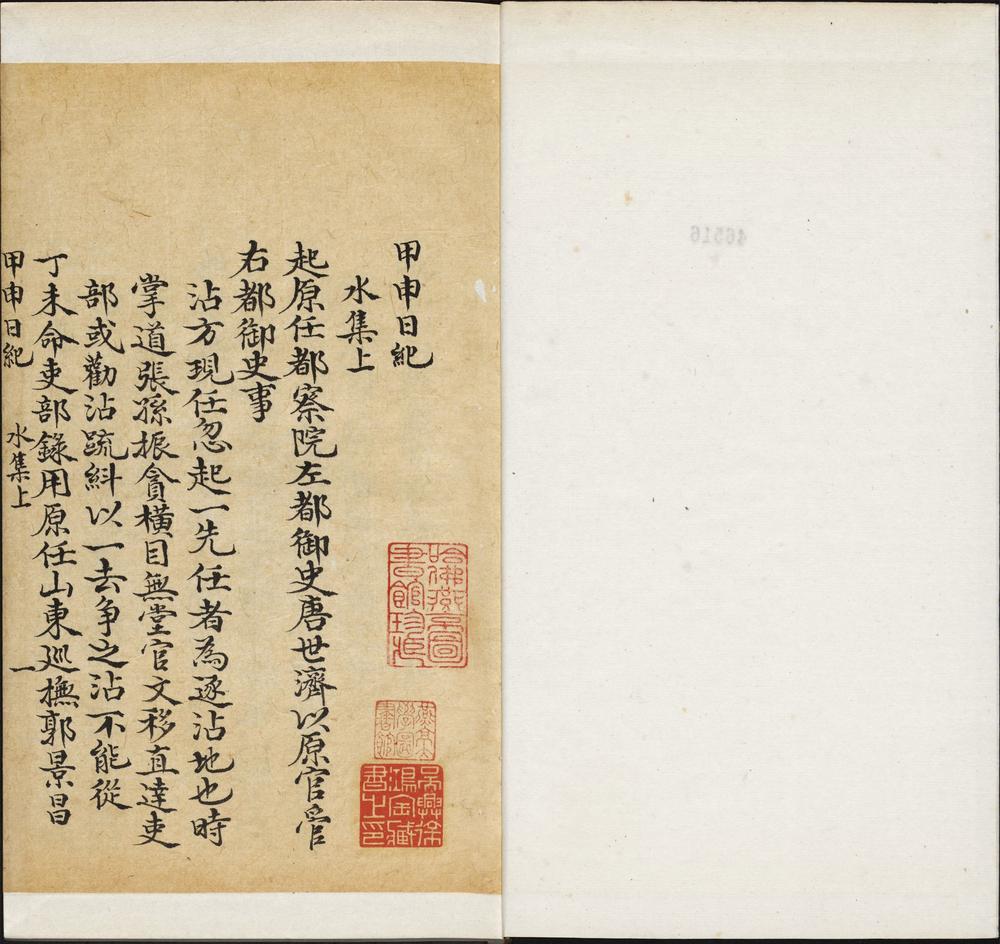 甲申日紀
水集上
起原任都察院左都御史唐世濟以原官管
右都御史事
沾方現任忽起一先任者為逐沾地也時
掌道張孫振貪橫目無堂官文移直達吏
部或勸沾疏糾以一去争之沾不能從
丁未命吏部錄用原任山東巡撫郭景昌
甲申日紀 水集上 一
哈佛燕京圖書館珍藏
吳興徐鴻金藏書之印
46516